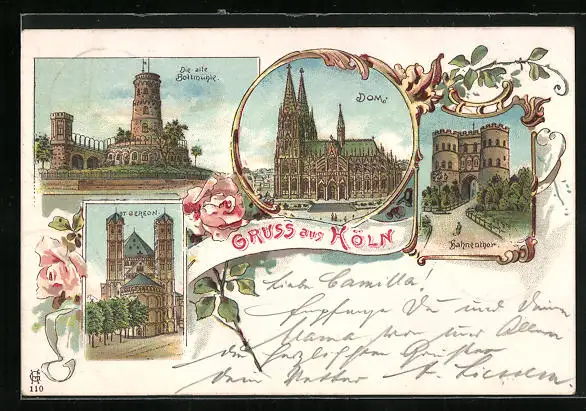 Die alte
Bottmühle.
DOM.
Hahnenthor.
ST GEREON.
GRUSS aus KÖLN
Liebe Camilla!
Empfange Du und Deine
Mama von uns Allen
die herzlichsten Grüße
Dein Vetter
110